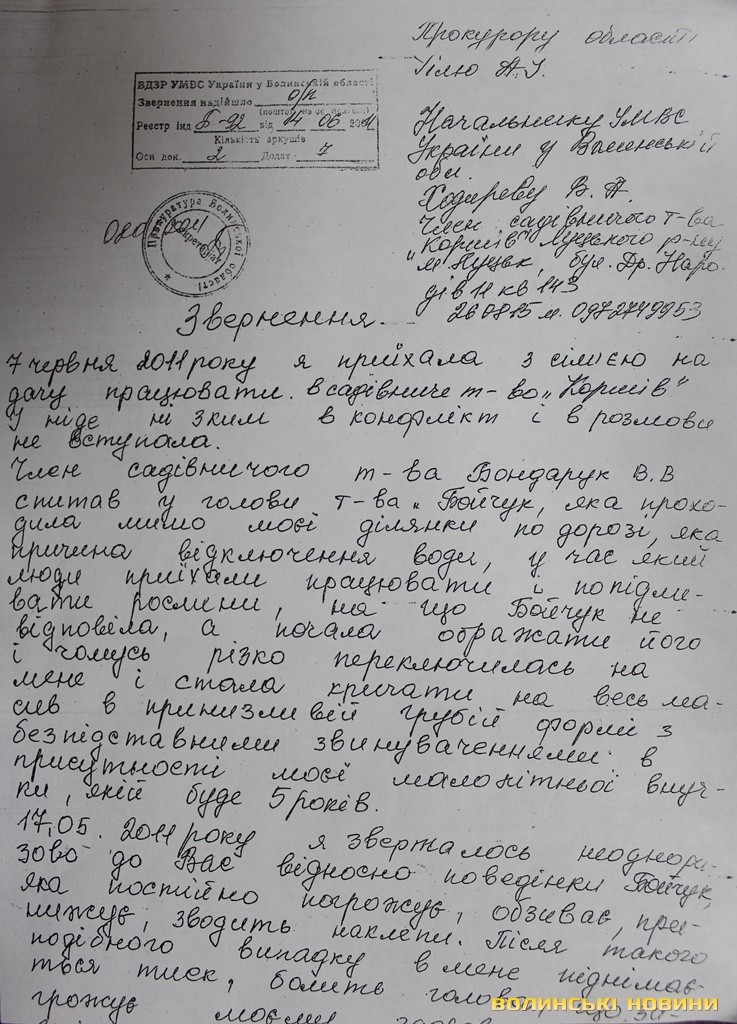 Прокурору області
Гілю А.І.
ВДЗР УМВС України у Волинській області
Звернення надійшло о/п
Реєстр інд Б-92 від 14 06 2011
Кількість аркушів
Осн док. 2 Додат. 7
Начальнику УМВС
України у Волинській
обл.
Ходыреву В.А.
Член садівничого т-ва
"Коршів" Луцького р-ну
м Луцьк, бул. Др. Наро-
дів 11 кв 143
260815 м. 0972749953
Прокуратура Волинської області
Звернення.
7 червня 2011 року я приїхала з сім'єю на
дачу працювати. в садівниче т-во "Коршів"
У ніде ні з ким в конфлікт і в розмови
не вступала.
Член садівничого т-ва Бондарук В.В
спитав у голови т-ва "Бойчук, яка прохо-
дила мимо моєї ділянки по дорозі, яка
причина відключення води, у час який
люди приїхали працювати і попідли-
вати рослини, на що Бойчук не
відповіла, а почала ображати його
і чомусь різко переключилась на
мене і стала кричати на весь ма-
сив в принизливій грубій формі з
безпідставними звинуваченнями в
присутності моєї малолітньої внуч-
ки, якій буде 5 років.
17.05. 2011 року я звержалось неоднора-
зово до Вас відносно поведінки Бойчук,
яка постійно погрожує, обзиває, при-
нижує, зводить наклепи. Після такого
подібного випадку в мене піднімає-
ться тиск, болить голова, що за-
грожує моєму
ВОЛИНСЬКІ НОВИНИ